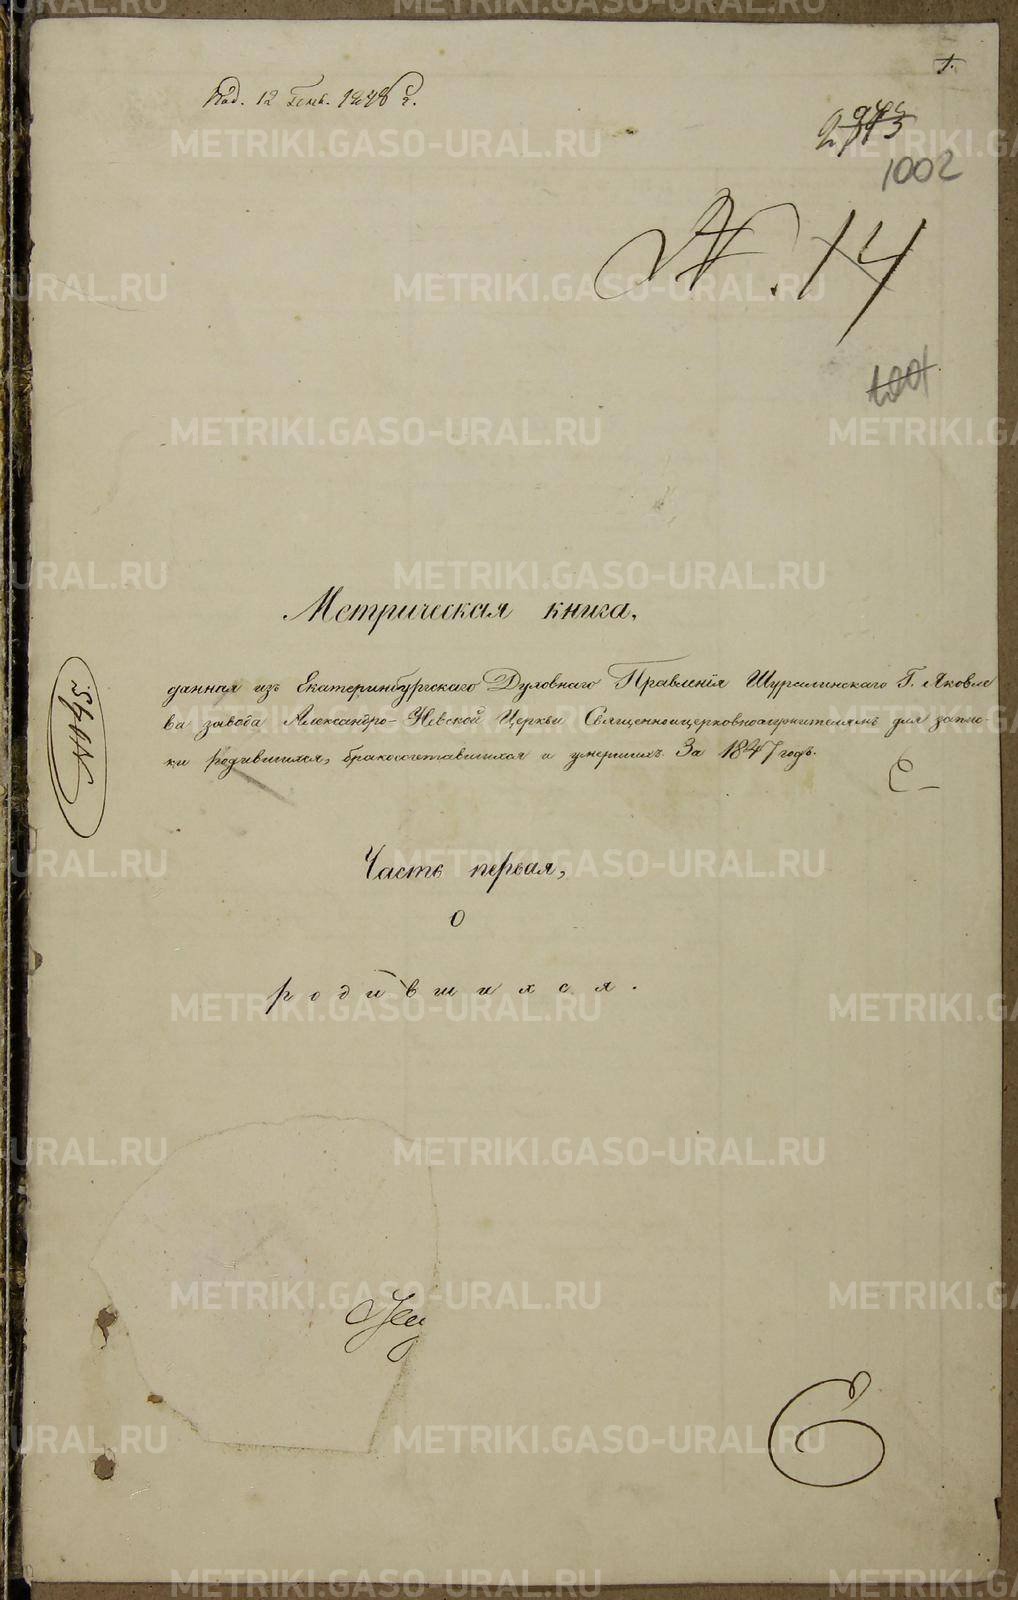 1.
Под. 12 Генв. 1848 г.
1002
№. 14
Метрическая книга,
данная изъ Екатеринбургскаго Духовнаго Правленія Шуралинскаго Г. Яковле
ва завода Александро-Невской Церкви Священноицерковнослужителямъ для запис-
ки родившихся, бракосочетавшихся и умершихъ За 1847 годъ.
Часть первая,
о
родившихся.
METRIKI.GASO-URAL.RU